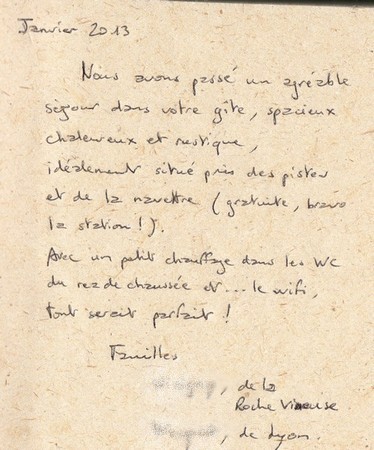 Janvier 2013
Nous avons passé un agréable
séjour dans votre gîte, spacieux
chaleureux et rustique,
idéalement situé près des pistes
et de la navette (gratuite, bravo
la station !).
Avec un petit chauffage dans les WC
du rez de chaussée et... le wifi,
tout serait parfait !
Familles
, de la
Roche Vineuse.
, de Lyon.